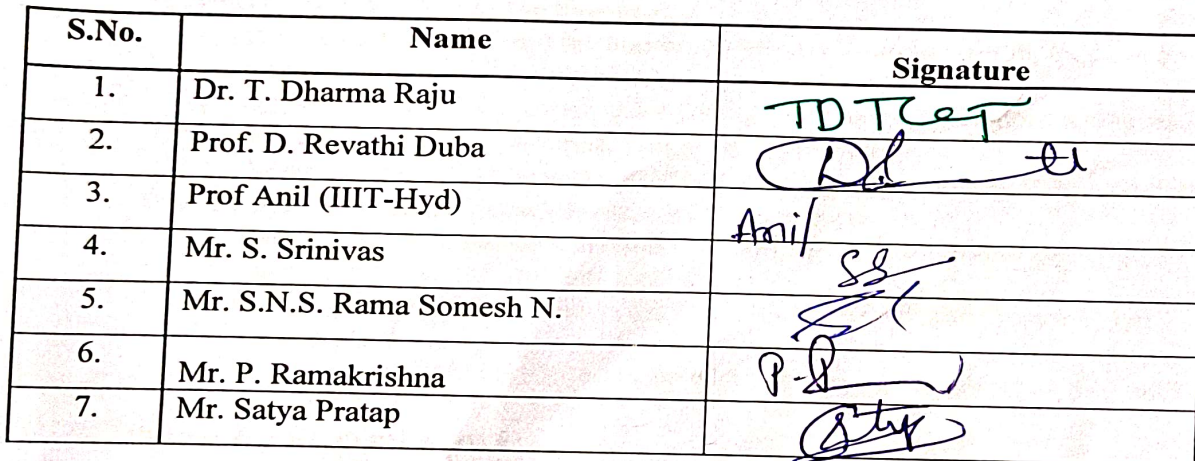 S.No. Name Signature
1. Dr. T. Dharma Raju
2. Prof. D. Revathi Duba
3. Prof Anil (IIIT-Hyd) Anil
4. Mr. S. Srinivas SS
5. Mr. S.N.S. Rama Somesh N.
6. Mr. P. Ramakrishna
7. Mr. Satya Pratap